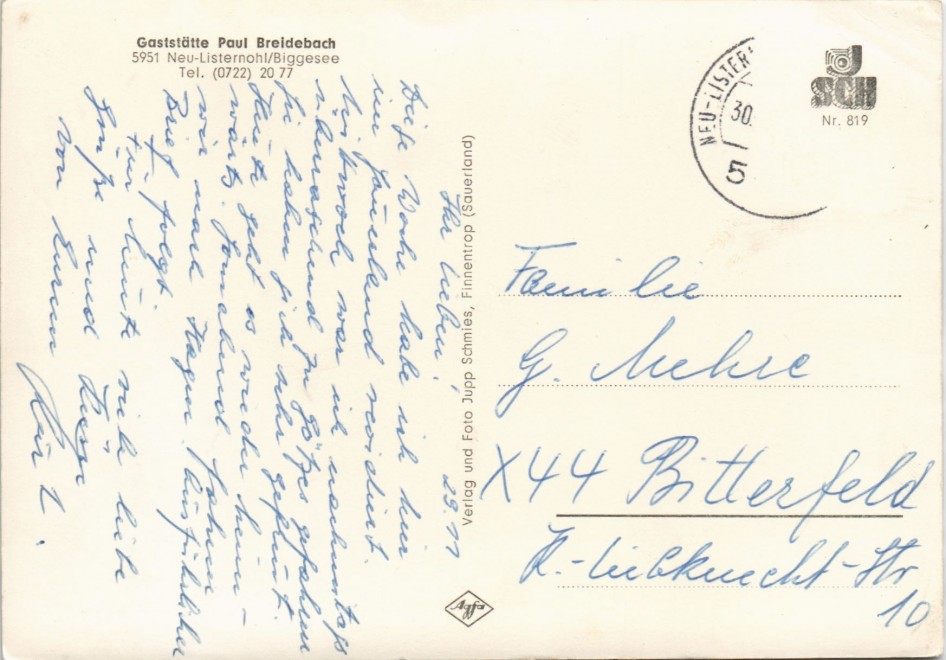 Gaststätte Paul Breidebach
5951 Neu-Listernohl/Biggesee
Tel. (0722) 20 77
Ihr Lieben! 29.11
Diese Woche habe ich hier
im Sauerland revidiert.
Mittwoch war ich nachmittags
überraschend zu Götzes gefahren
Sie haben sich sehr gefreut.
Heute geht es wieder heim-
wärts. Sonnabend fahren
wir nach Hagen. Ausführlicher
Brief folgt.
Für heute viele liebe
Grüße und
von Eurem
Kurt.
Verlag und Foto Jupp Schmies, Finnentrop (Sauerland)
Agfa
NEU-LISTER
30.
5
J
SCH
Nr. 819
Familie
G. Mehre
X44 Bitterfeld
K.-Liebknecht-Str
10